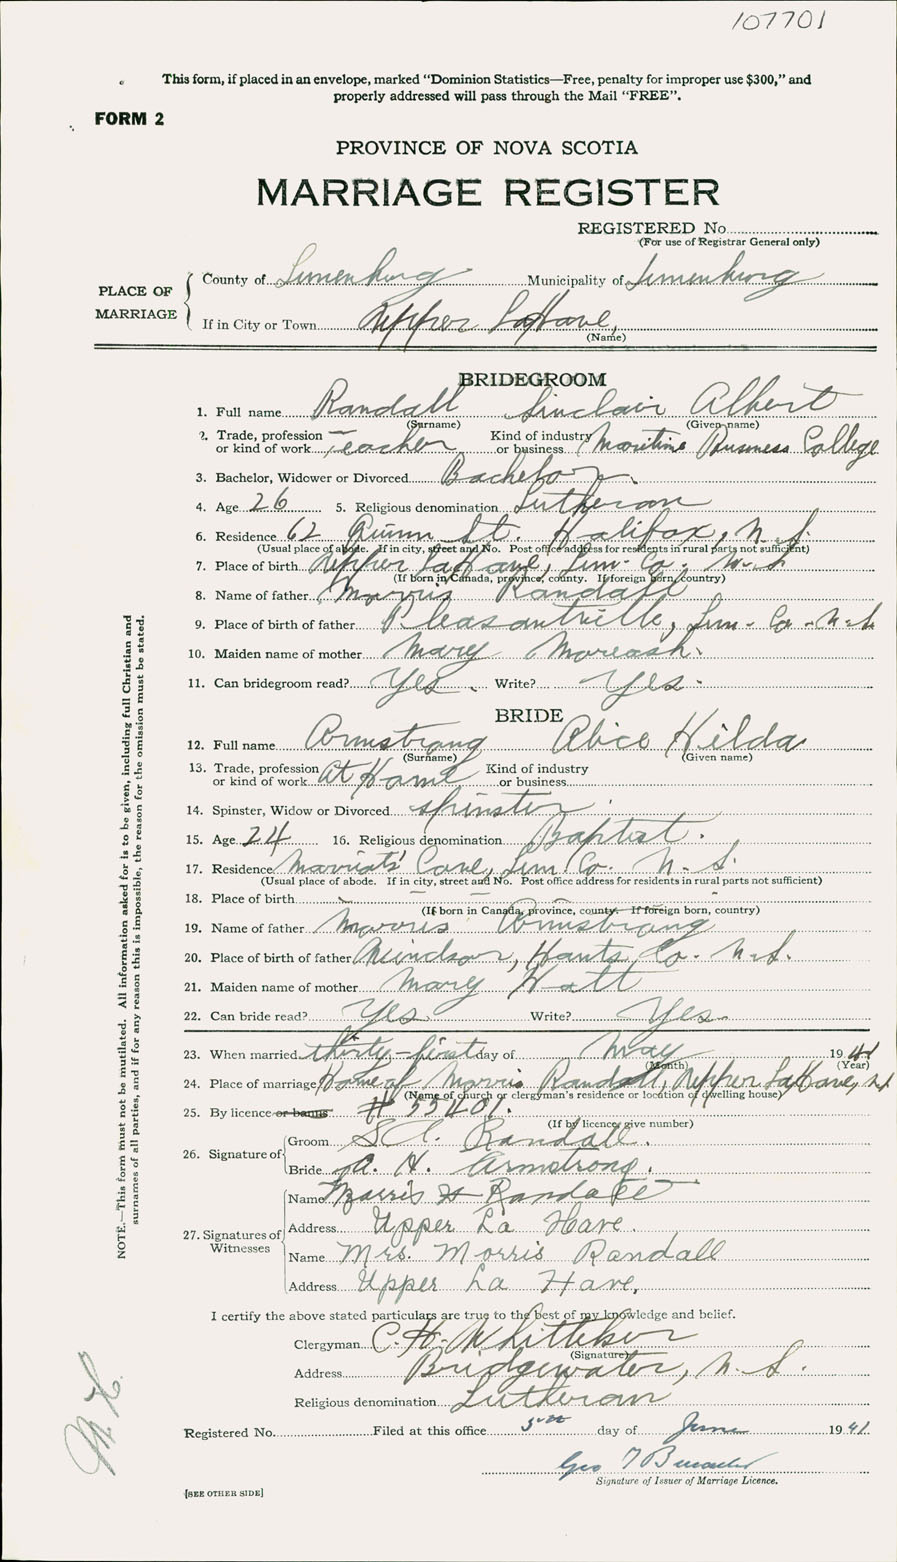 107701
This form, if placed in an envelope, marked "Dominion Statistics—Free, penalty for improper use $300," and
properly addressed will pass through the Mail "FREE".
FORM 2
PROVINCE OF NOVA SCOTIA
MARRIAGE REGISTER
REGISTERED No.
(For use of Registrar General only)
PLACE OF MARRIAGE
County of Lunenburg Municipality of Lunenburg
If in City or Town Upper LaHave,
(Name)
BRIDEGROOM
1. Full name Randall Sinclair Albert
(Surname) (Given name)
2. Trade, profession or kind of work Teacher Kind of industry or business Maritime Business College
3. Bachelor, Widower or Divorced Bachelor.
4. Age 26 5. Religious denomination Lutheran
6. Residence 62 Quinn St. Halifax, N. S.
(Usual place of abode. If in city, street and No. Post office address for residents in rural parts not sufficient)
7. Place of birth Upper LaHave, Lun. Co. N. S
(If born in Canada, province, county. If foreign born, country)
8. Name of father Morris Randall
9. Place of birth of father Pleasantville, Lun. Co. N.S.
10. Maiden name of mother Mary Moreash.
11. Can bridegroom read? Yes. Write? Yes.
BRIDE
12. Full name Armstrong Alice Hilda
(Surname) (Given name)
13. Trade, profession or kind of work At Home Kind of industry or business
14. Spinster, Widow or Divorced spinster.
15. Age 24 16. Religious denomination Baptist.
17. Residence Marriots' Cove, Lun. Co. N. S.
(Usual place of abode. If in city, street and No. Post office address for residents in rural parts not sufficient)
18. Place of birth
(If born in Canada, province, county. If foreign born, country)
19. Name of father Morris Armstrong
20. Place of birth of father Windsor, Hants Co. N.S.
21. Maiden name of mother Mary Hatt
22. Can bride read? Yes. Write? Yes.
23. When married thirty-first day of May 1941
(Month) (Year)
24. Place of marriage Home of Morris Randall, Upper LaHave, N.S
(Name of church or clergyman's residence or location of dwelling house)
25. By licence or banns # 55401.
(If by licence, give number)
26. Signature of
Groom S. A. Randall.
Bride A. H. Armstrong.
27. Signatures of Witnesses
Name Morris H Randall
Address Upper La Have.
Name Mrs. Morris Randall
Address Upper La Have.
I certify the above stated particulars are true to the best of my knowledge and belief.
Clergyman C. H. Whitteker
(Signature)
Address Bridgewater, N. S.
Religious denomination Lutheran
Registered No. Filed at this office 5th day of June 1941
Geo T
Signature of Issuer of Marriage Licence.
[SEE OTHER SIDE]
NOTE.—This form must not be mutilated. All information asked for is to be given, including full Christian and
surnames of all parties, and if for any reason this is impossible, the reason for the omission must be stated.